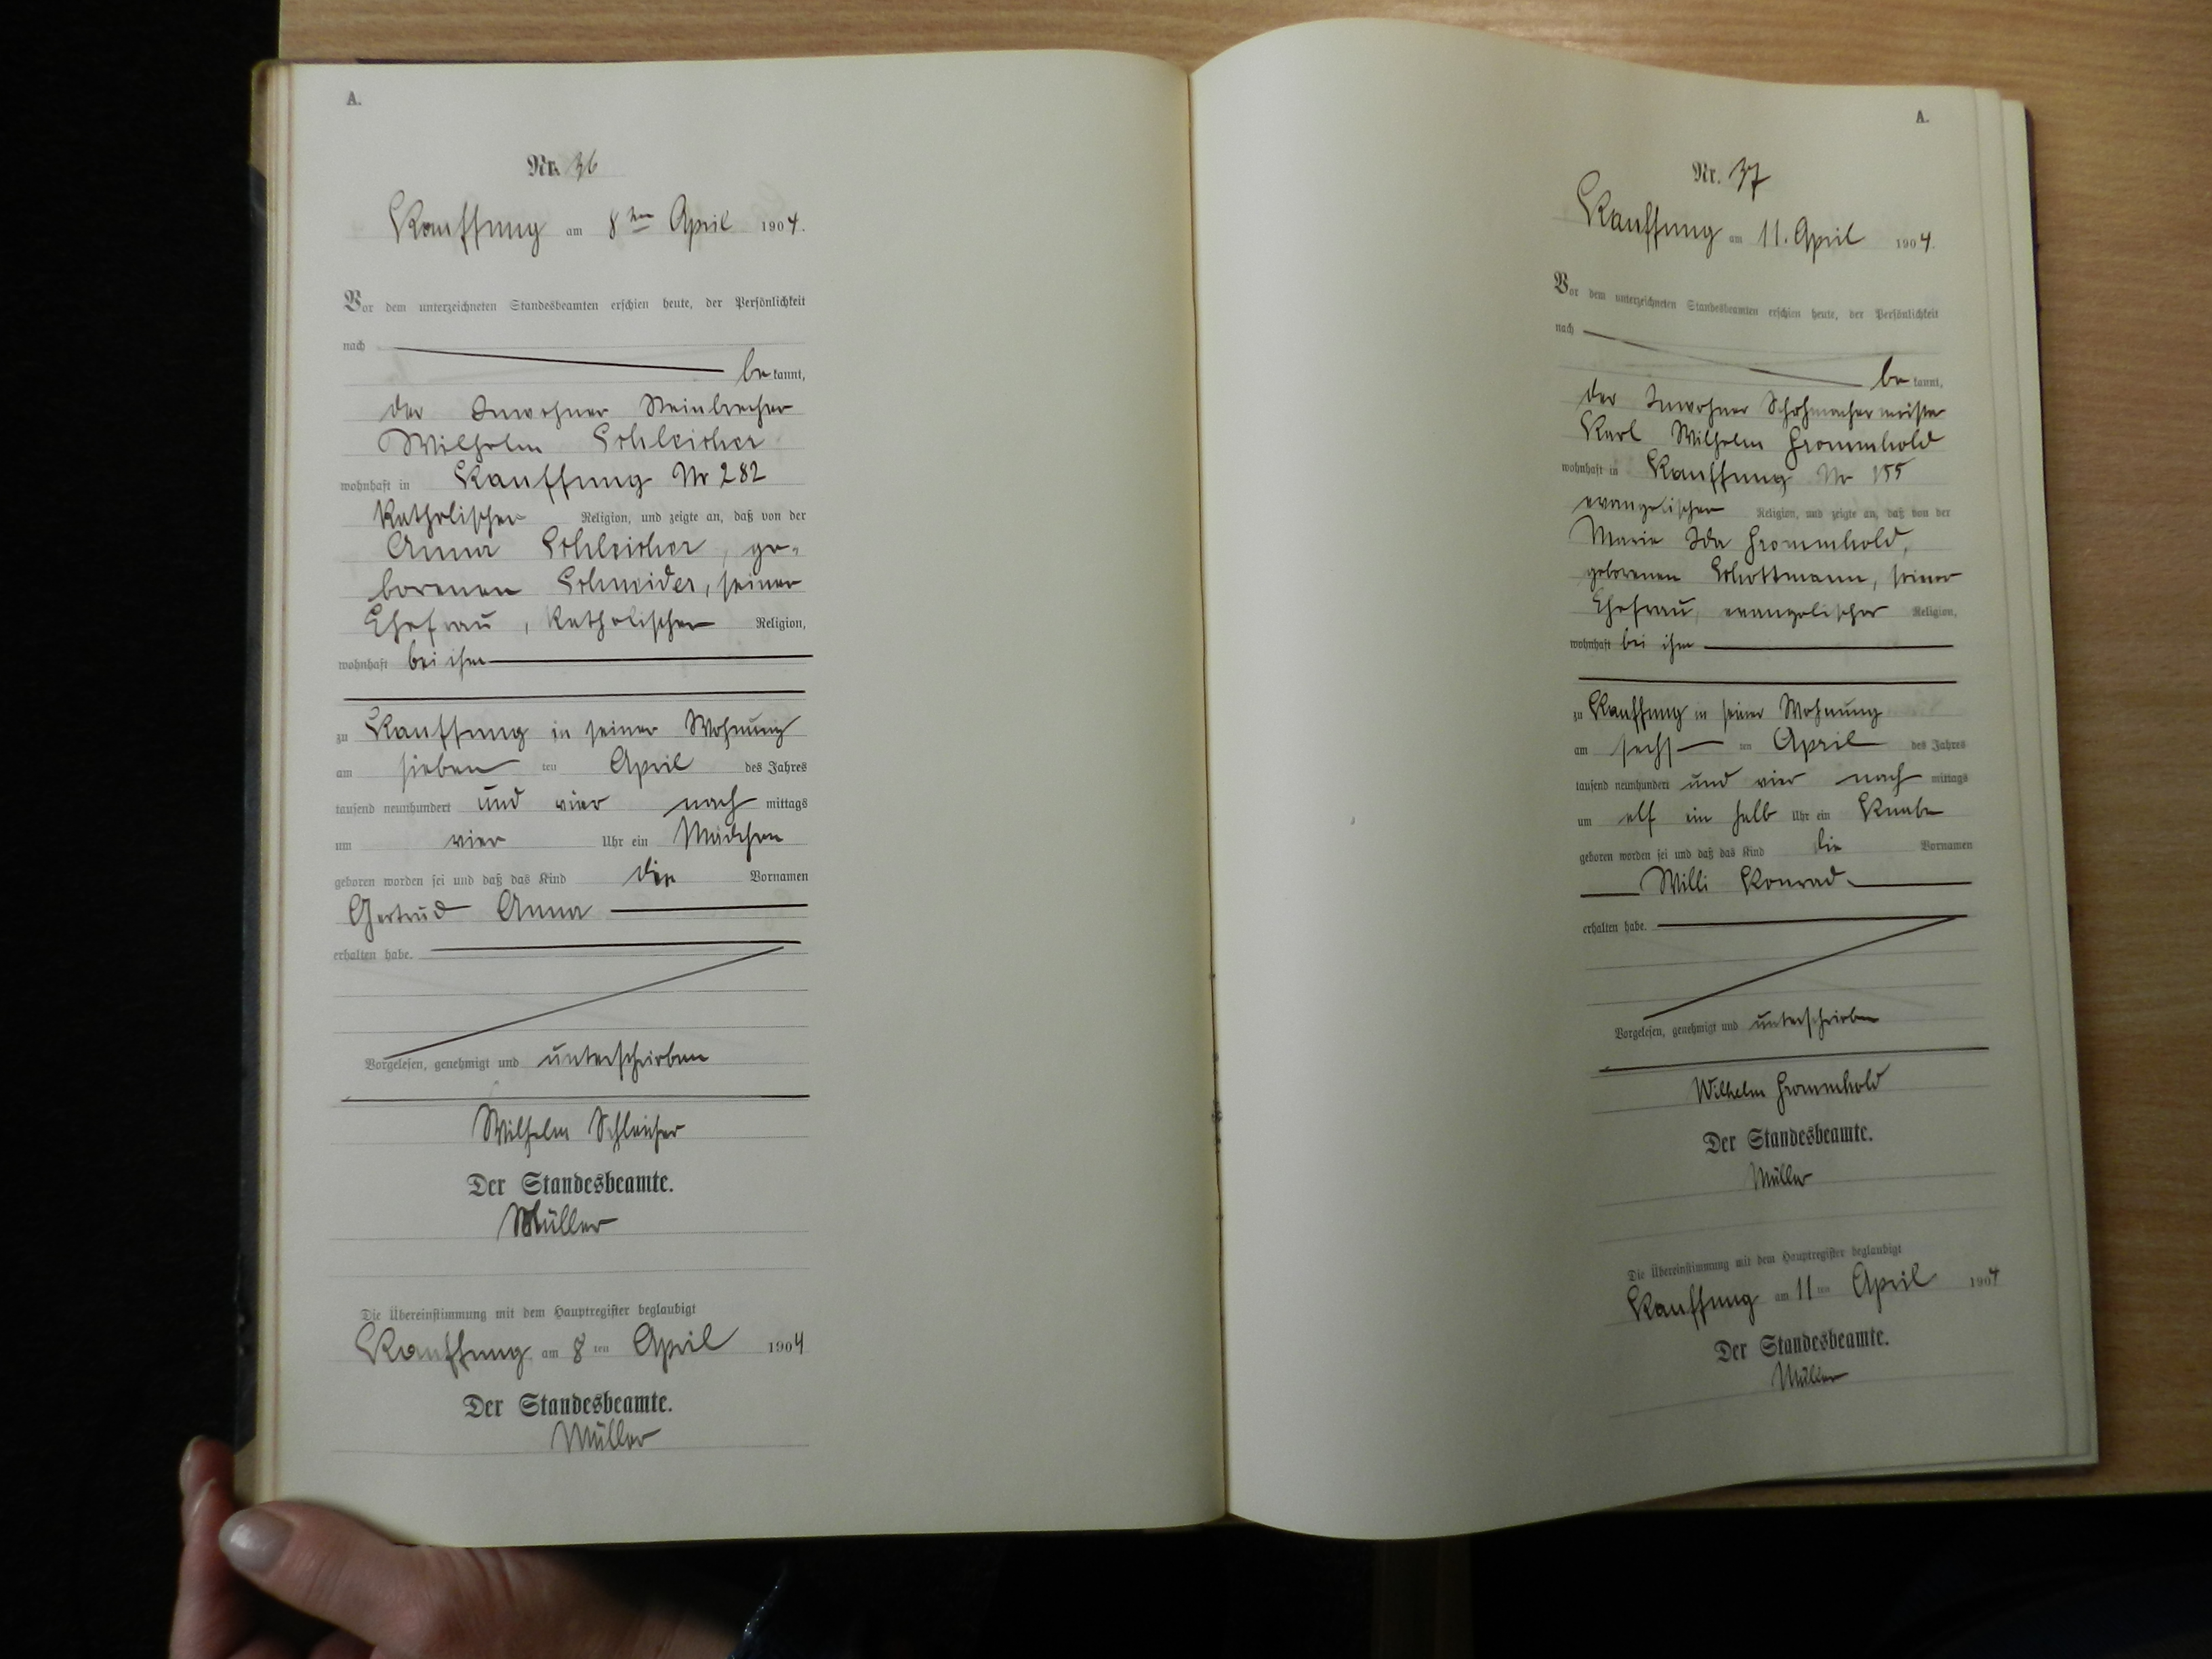 A.
Nr. 36
Kauffung am 8ten April 1904.
Vor dem unterzeichneten Standesbeamten erschien heute, der Persönlichkeit
nach
be kannt,
der Inwohner Steinbrecher
Wilhelm Schleicher
wohnhaft in Kauffung Nr 282
katholischer Religion, und zeigte an, daß von der
Anna Schleicher, ge-
borenen Schneider, seiner
Ehefrau, katholischer Religion,
wohnhaft bei ihm
zu Kauffung in seiner Wohnung
am sieben ten April des Jahres
tausend neunhundert und vier nach mittags
um vier Uhr ein Mädchen
geboren worden sei und daß das Kind die Vornamen
Gertrud Anna
erhalten habe.
Vorgelesen, genehmigt und unterschrieben
Wilhelm Schleicher
Der Standesbeamte.
Müller
Die Übereinstimmung mit dem Hauptregister beglaubigt
Kauffung am 8 ten April 1904
Der Standesbeamte.
Müller
A.
Nr. 37
Kauffung am 11. April 1904.
Vor dem unterzeichneten Standesbeamten erschien heute, der Persönlichkeit
nach
be kannt,
der Inwohner Schuhmachermeister
Karl Wilhelm Frommhold
wohnhaft in Kauffung Nr 155
evangelischer Religion, und zeigte an, daß von der
Marie Ida Frommhold,
geborenen Schottmann, seiner
Ehefrau, evangelischer Religion,
wohnhaft bei ihm
zu Kauffung in seiner Wohnung
am sechs ten April des Jahres
tausend neunhundert und vier nach mittags
um elf ein halb Uhr ein Knabe
geboren worden sei und daß das Kind die Vornamen
Willi Konrad
erhalten habe.
Vorgelesen, genehmigt und unterschrieben
Wilhelm Frommhold
Der Standesbeamte.
Müller
Die Übereinstimmung mit dem Hauptregister beglaubigt
Kauffung am 11 ten April 1904
Der Standesbeamte.
Müller